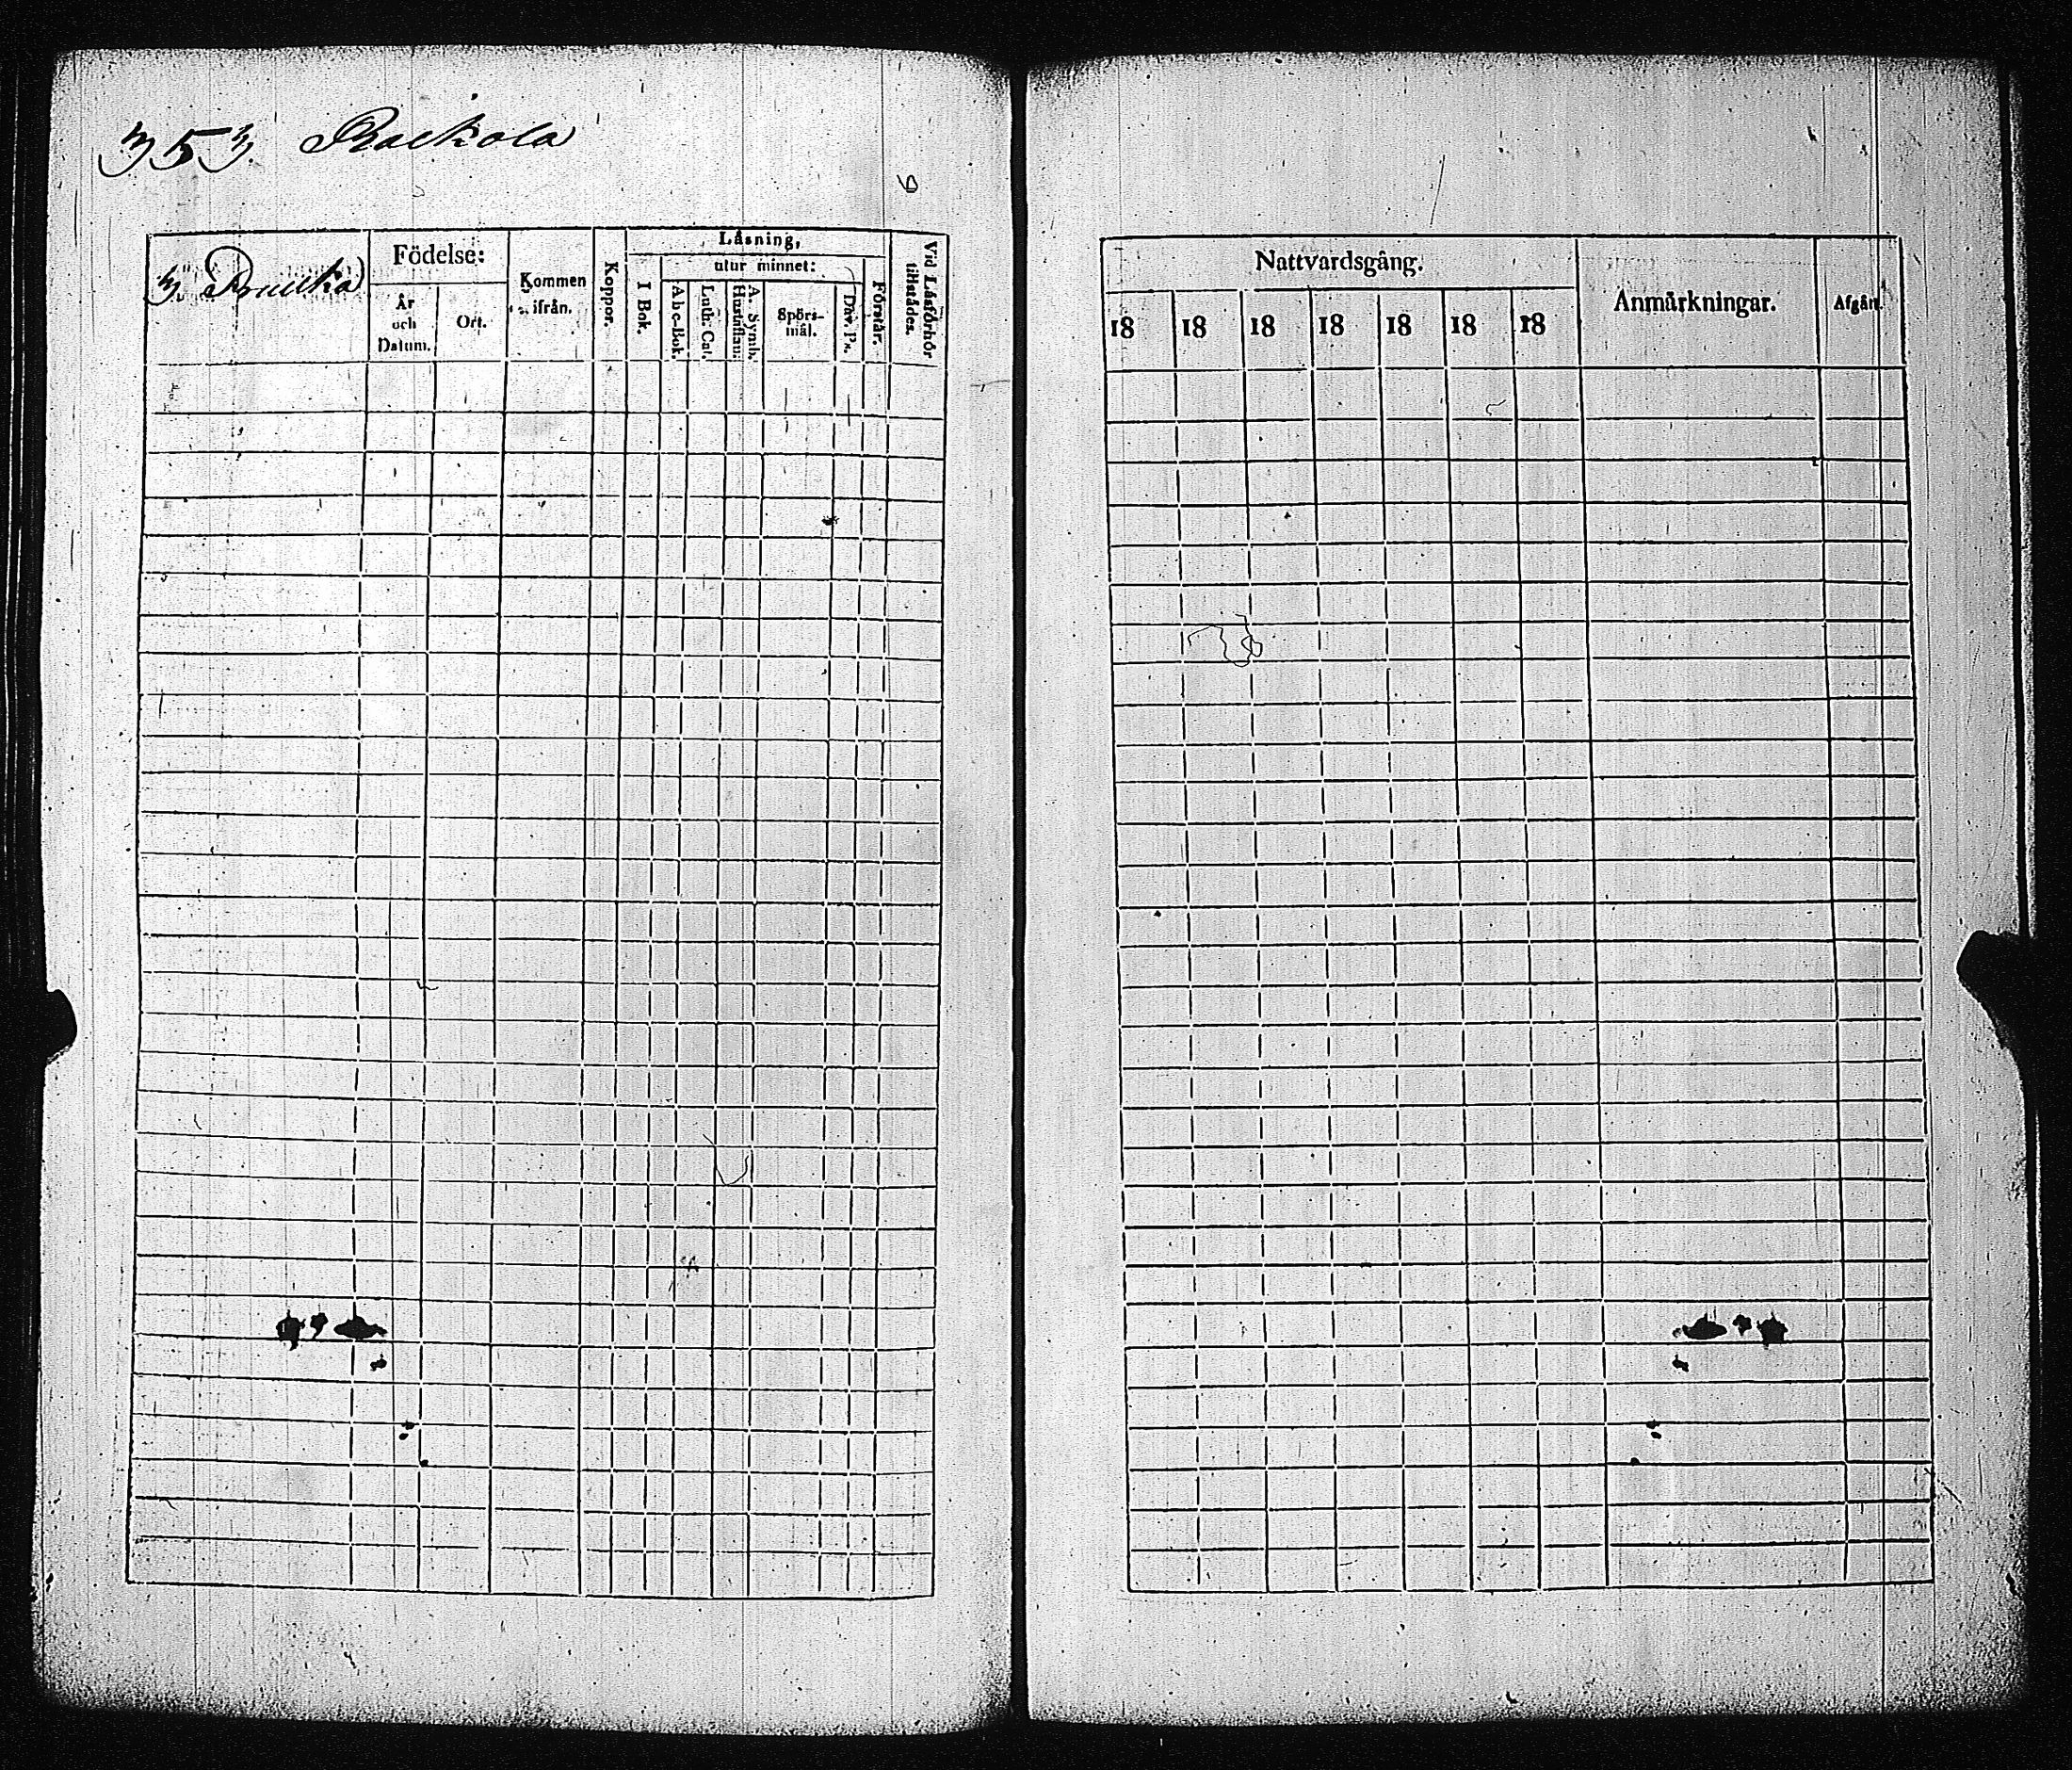 353. Raikola
3. Pruikka
Födelse:
År
och
Datum.
Ort.
Kommen
ifrån.
Koppor.
Läsning,
I Bok.
utur minnet:
Abc-Bok.
Luth: Cat.
Hustaflan:
A. Symb.
Spörs-
mål.
Dav. Ps.
Förstår.
Vid Läsförhör
tillstädes.
Nattvardsgång.
18 18 18 18 18 18 18
Anmärkningar.
Afgått.